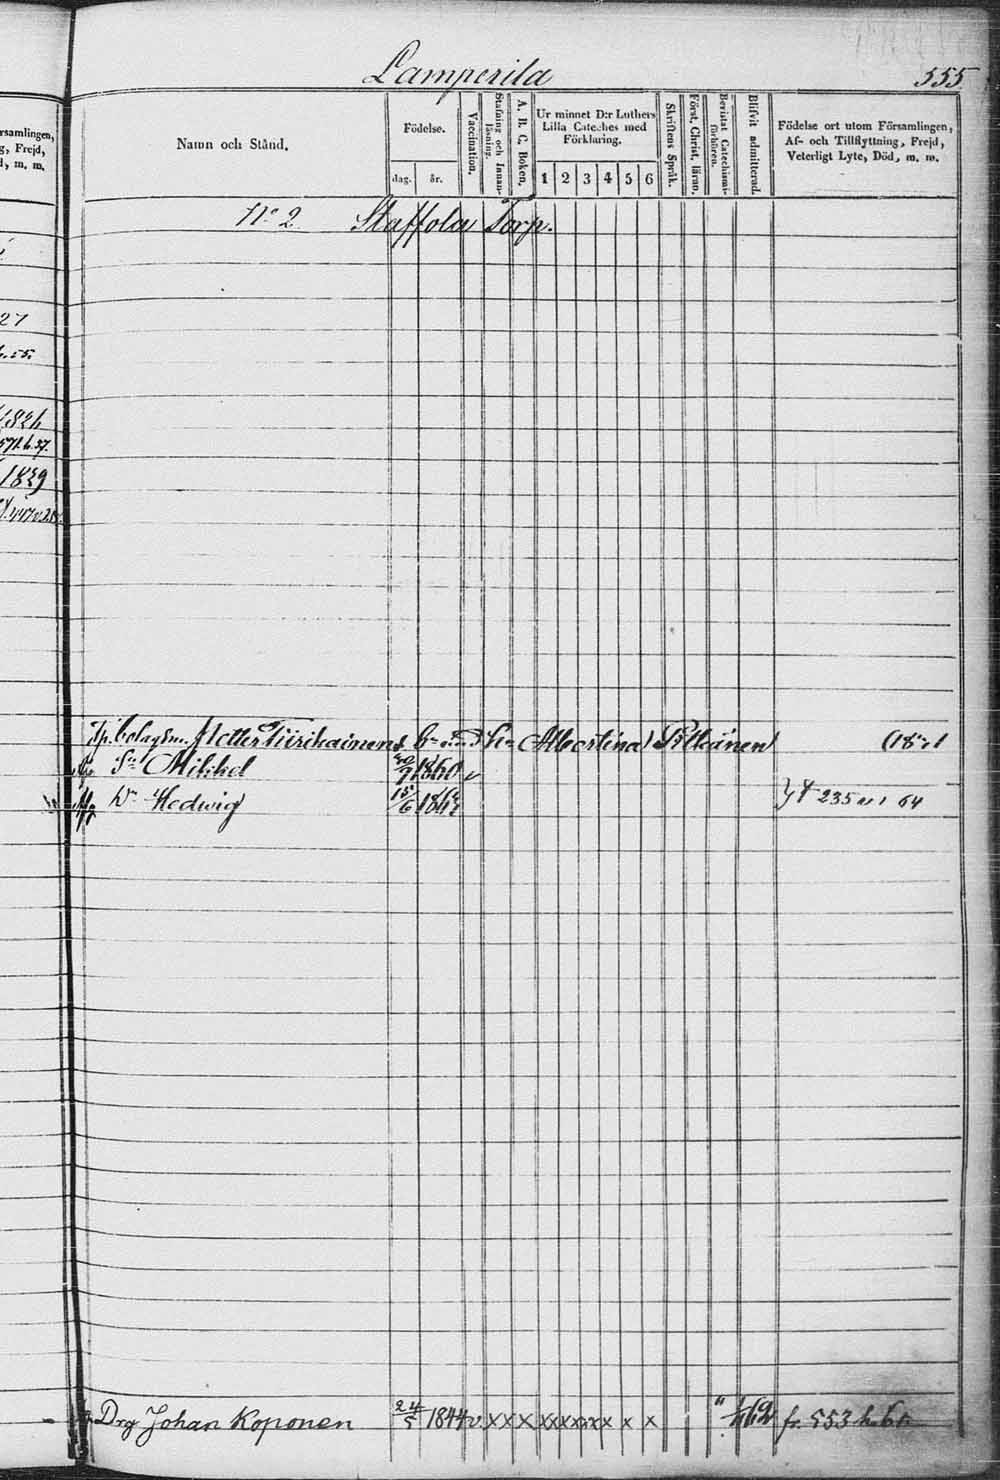 Lamperila 555
rsamlingen,
g, Frejd,
d, m. m.
Namn och Stånd.
Födelse.
dag. år.
Vaccination.
Stafning och Innanläsning.
A. B. C. Boken.
Ur minnet D:r Luthers Lilla Cateches med Förklaring.
1 2 3 4 5 6
Skriftens Språk.
Först. Christ. läran.
Bevistat Catechismiförhören.
Blifvit admitterad.
Födelse ort utom Församlingen, Af- och Tillflyttning, Frejd, Veterligt Lyte, Död, m. m.
N:o 2 Staffola Torp.
27
1824
1829
Tp. bolagsm. Petter Tiirikainens b:n med h:u Albertina Pitkänen
Sn Mikkel 30/9 1860 v
Dr Hedwig 15/6 1862 235 v 1 64
Drg Johan Koponen 24/5 1844 v x x x x x x x x x x x 62 fr. 553 h.